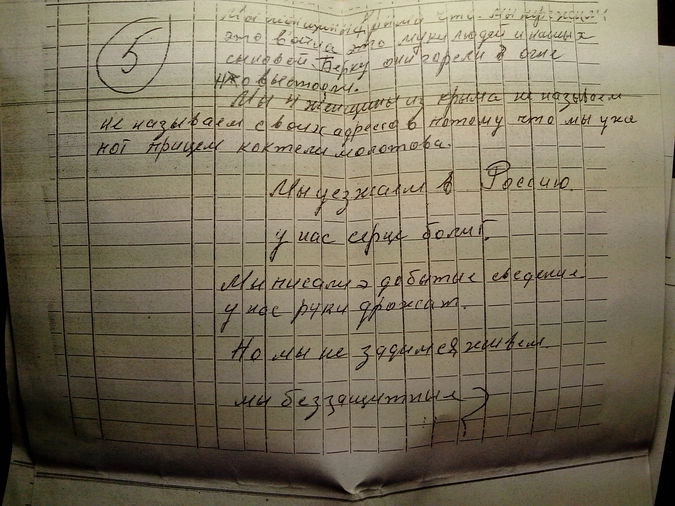 5
это война это муки людей и наших
сыновей Берку они горели в огне
Мы 4 женщины из крыма не называем
не называем своих адресов потому что мы уже
коктели молотова.
Мы уезжаем в Россию.
у нас серце болит.
Мы писали добытые сведения
у нас руки дрожат.
Но мы не здадимся живем
мы беззащитные